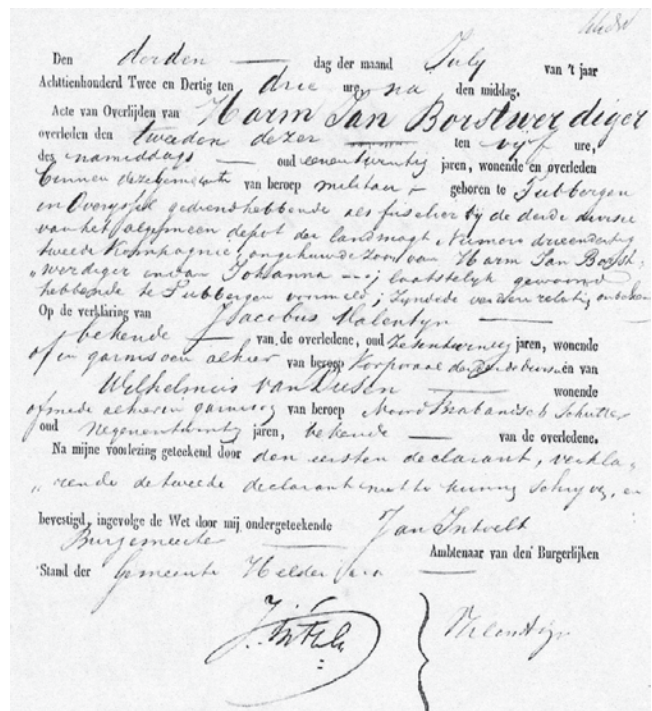 Den derden dag der maand July van 't jaar
Achttienhonderd Twee en Dertig ten drie ure na den middag,
Acte van Overlijden van Harm Jan Borstwerdiger
overleden den tweeden dezer ten vijf ure,
des namiddags oud eenentwintig jaren, wonende en overleden
binnen deze gemeente van beroep militair geboren te Tubbergen
in Overyssel gediend hebbende als fuselier bij de derde divisie
van het algemeen depot der landmagt Numero drieendertig
tweede Kompagnie, ongehuwde zoon van Harm Jan Borst-
„werdiger en van Johanna laatstelyk gewoond
hebbende te Tubbergen voormeld; zynde de verdere relatie onbekend
Op de verklaring van Jacobus Valentyn
bekende van de overledene, oud zesentwintig jaren, wonende
of in garnisoen alhier van beroep Korporaal en van
Wilhelmus van Dusen wonende
of mede alhier in garnizoen van beroep Noord Brabandsch Schutter
oud negenentwintig jaren, bekende van de overledene.
Na mijne voorlezing geteekend door den eersten declarant, verkla-
„rende de tweede declarant niet te kunnen schryven, en
bevestigd, ingevolge de Wet door mij ondergeteekende Jan Intveld
Burgemeester Ambtenaar van den Burgerlijken
Stand der Gemeente Helder
Valentijn